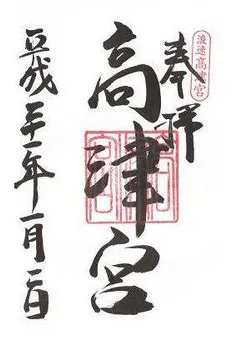 浪速高津宮
奉拝
高津宮
平成年一月日